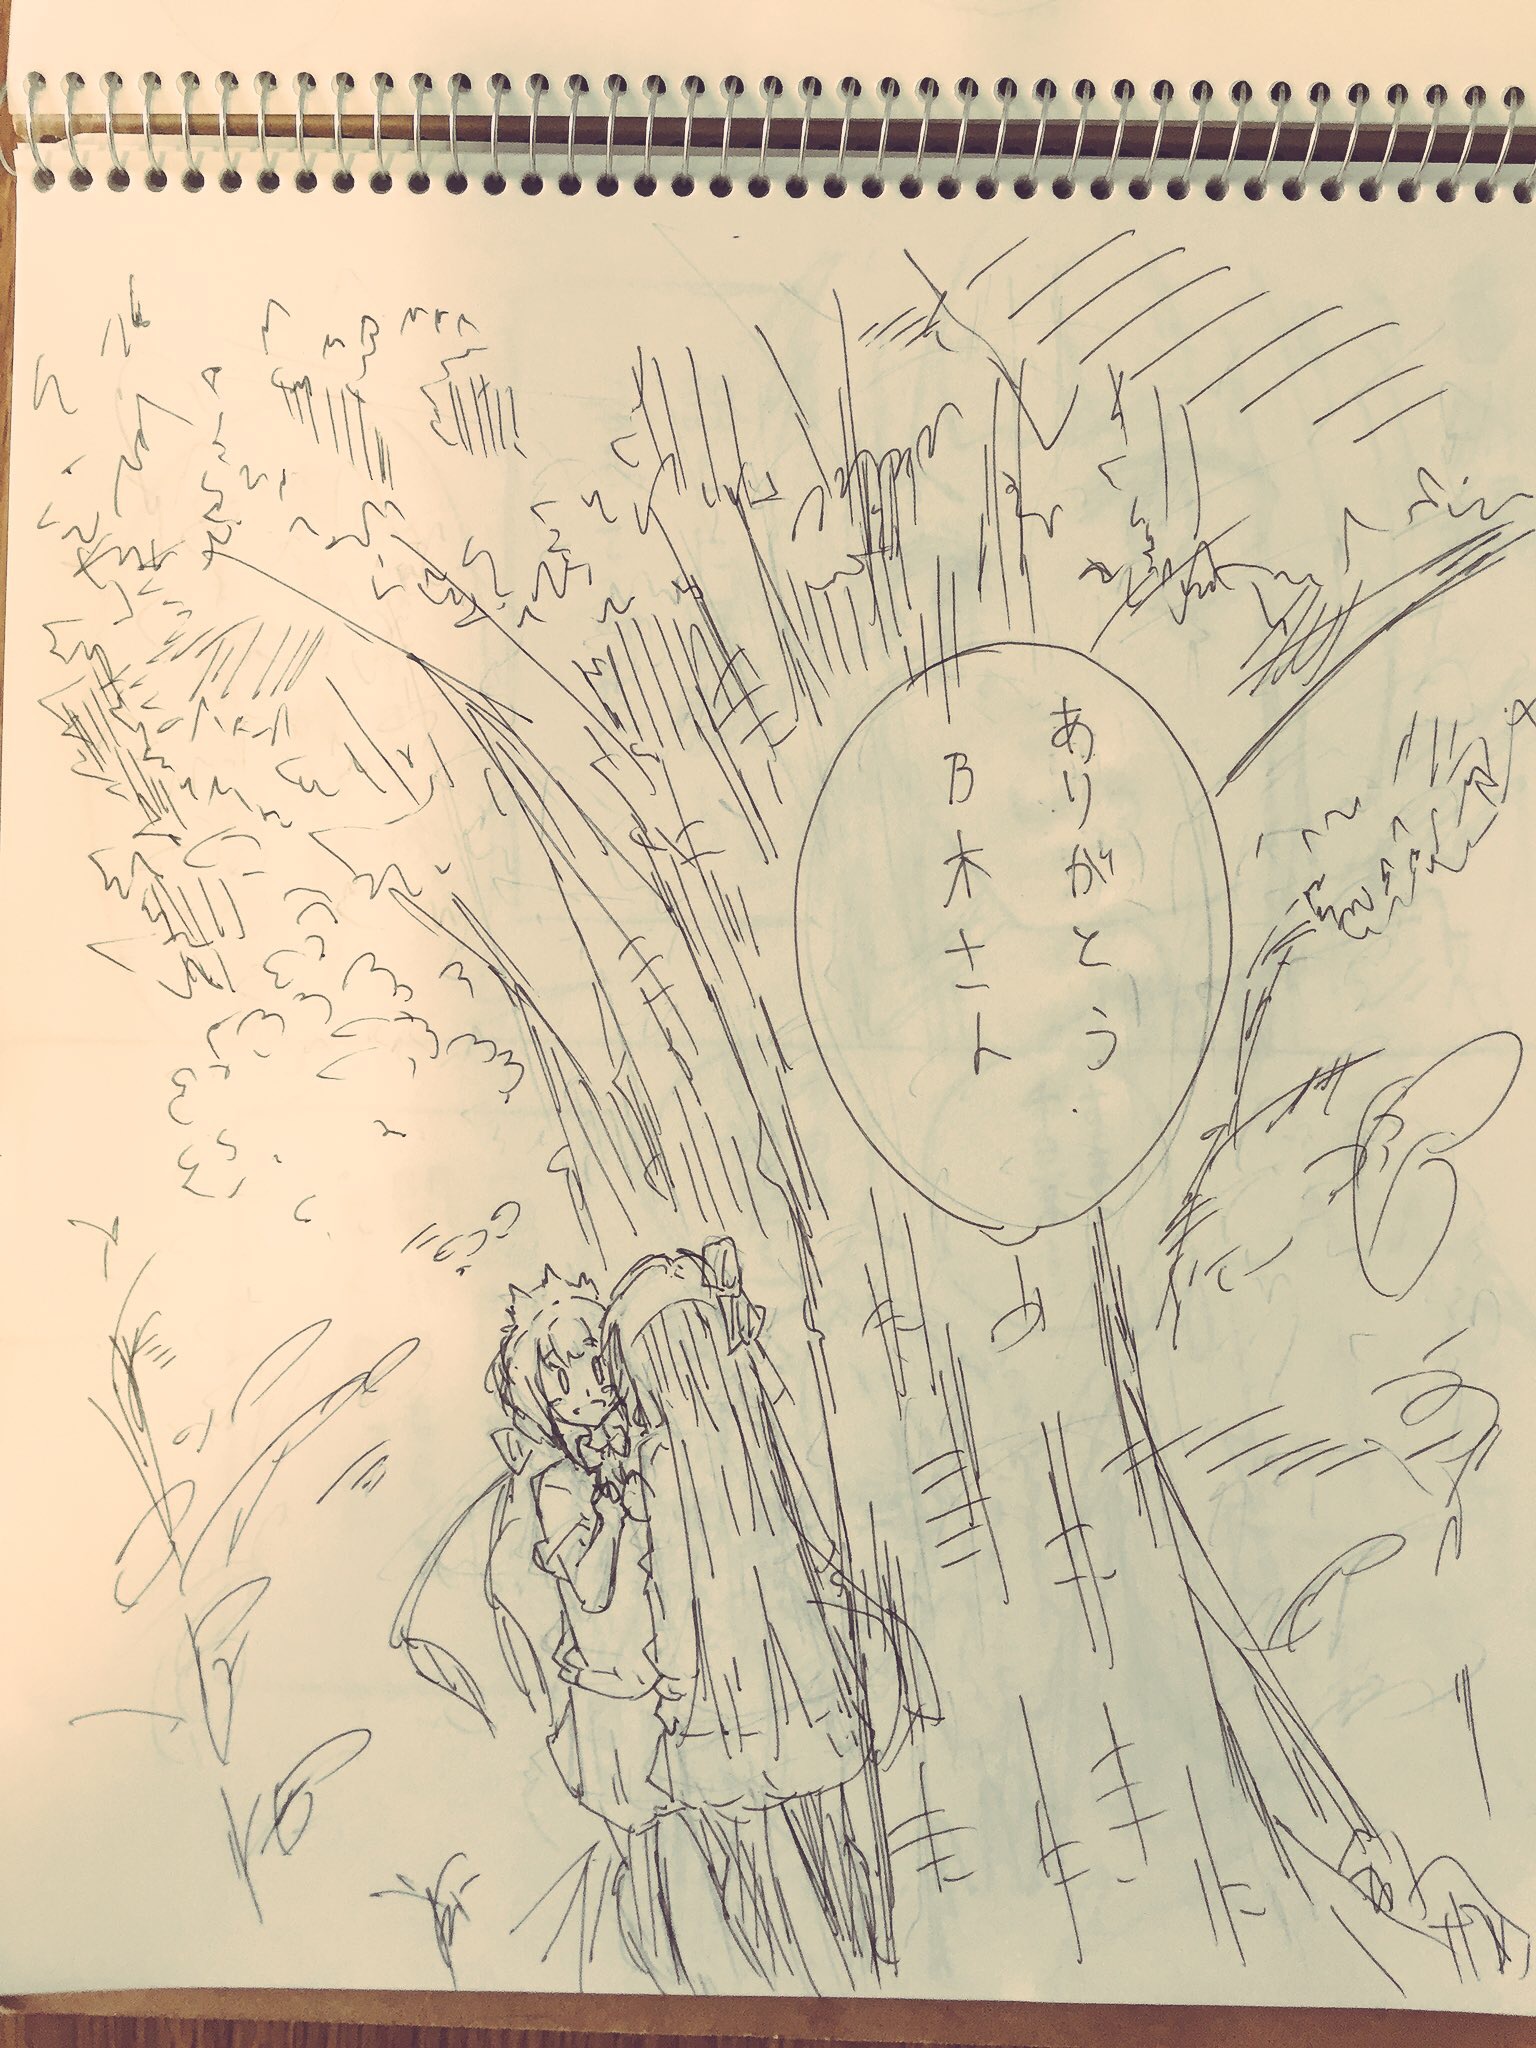 ありがとう
B木さん